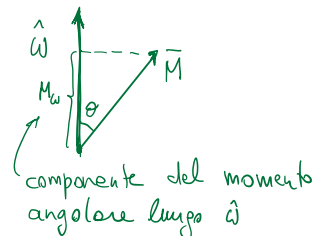 ω̂
M̄
M_ω
θ
componente del momento
angolare lungo ω̂